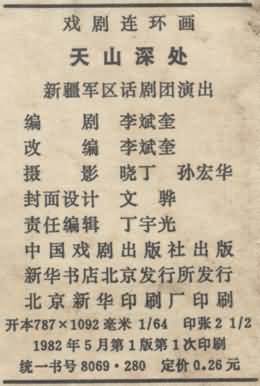 戏剧连环画
天山深处
新疆军区话剧团演出
编 剧 李斌奎
改 编 李斌奎
摄 影 晓丁 孙宏华
封面设计 文 骅
责任编辑 丁宇光
中国戏剧出版社出版
新华书店北京发行所发行
北京新华印刷厂印刷
开本787×1092毫米 1/64 印张2 1/2
1982年5月第1版第1次印刷
统一书号8069·280 定价0.26元